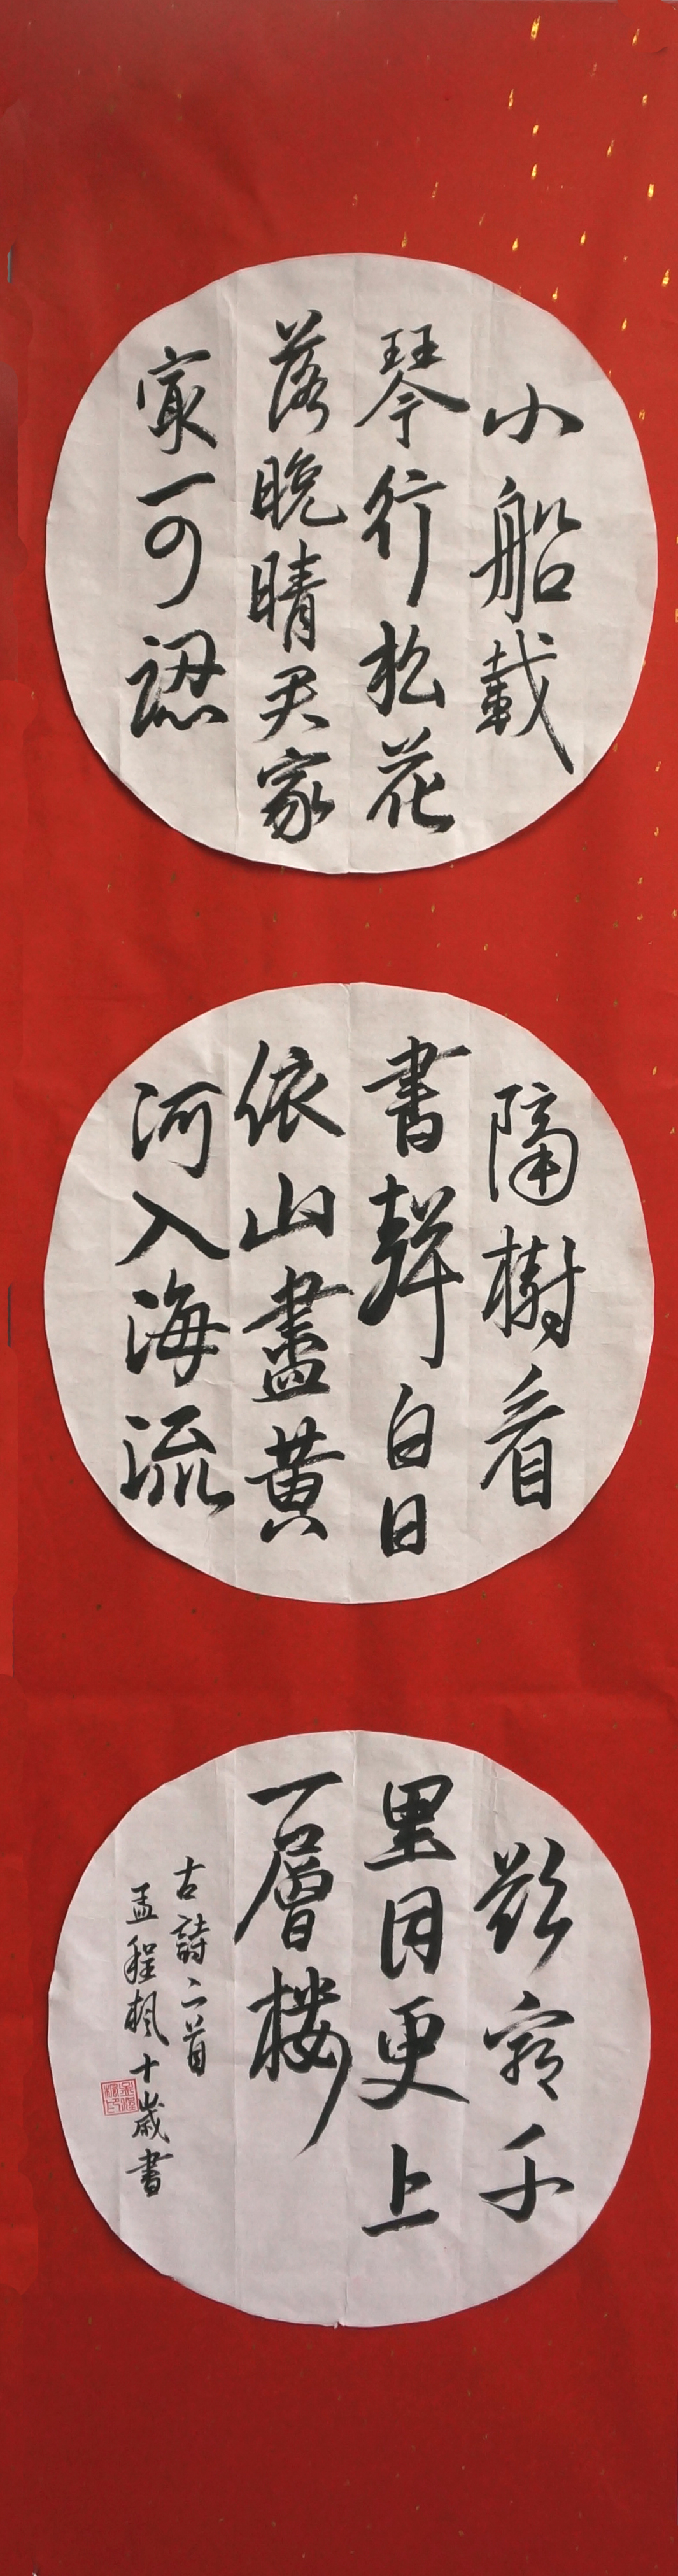 小船載
琴行松花
落晚晴君家
寂可認
隔樹看
書聲白日
依山盡黃
河入海流
欲窮千
里目更上
一層樓
古詩二首
孟程楓十歲書